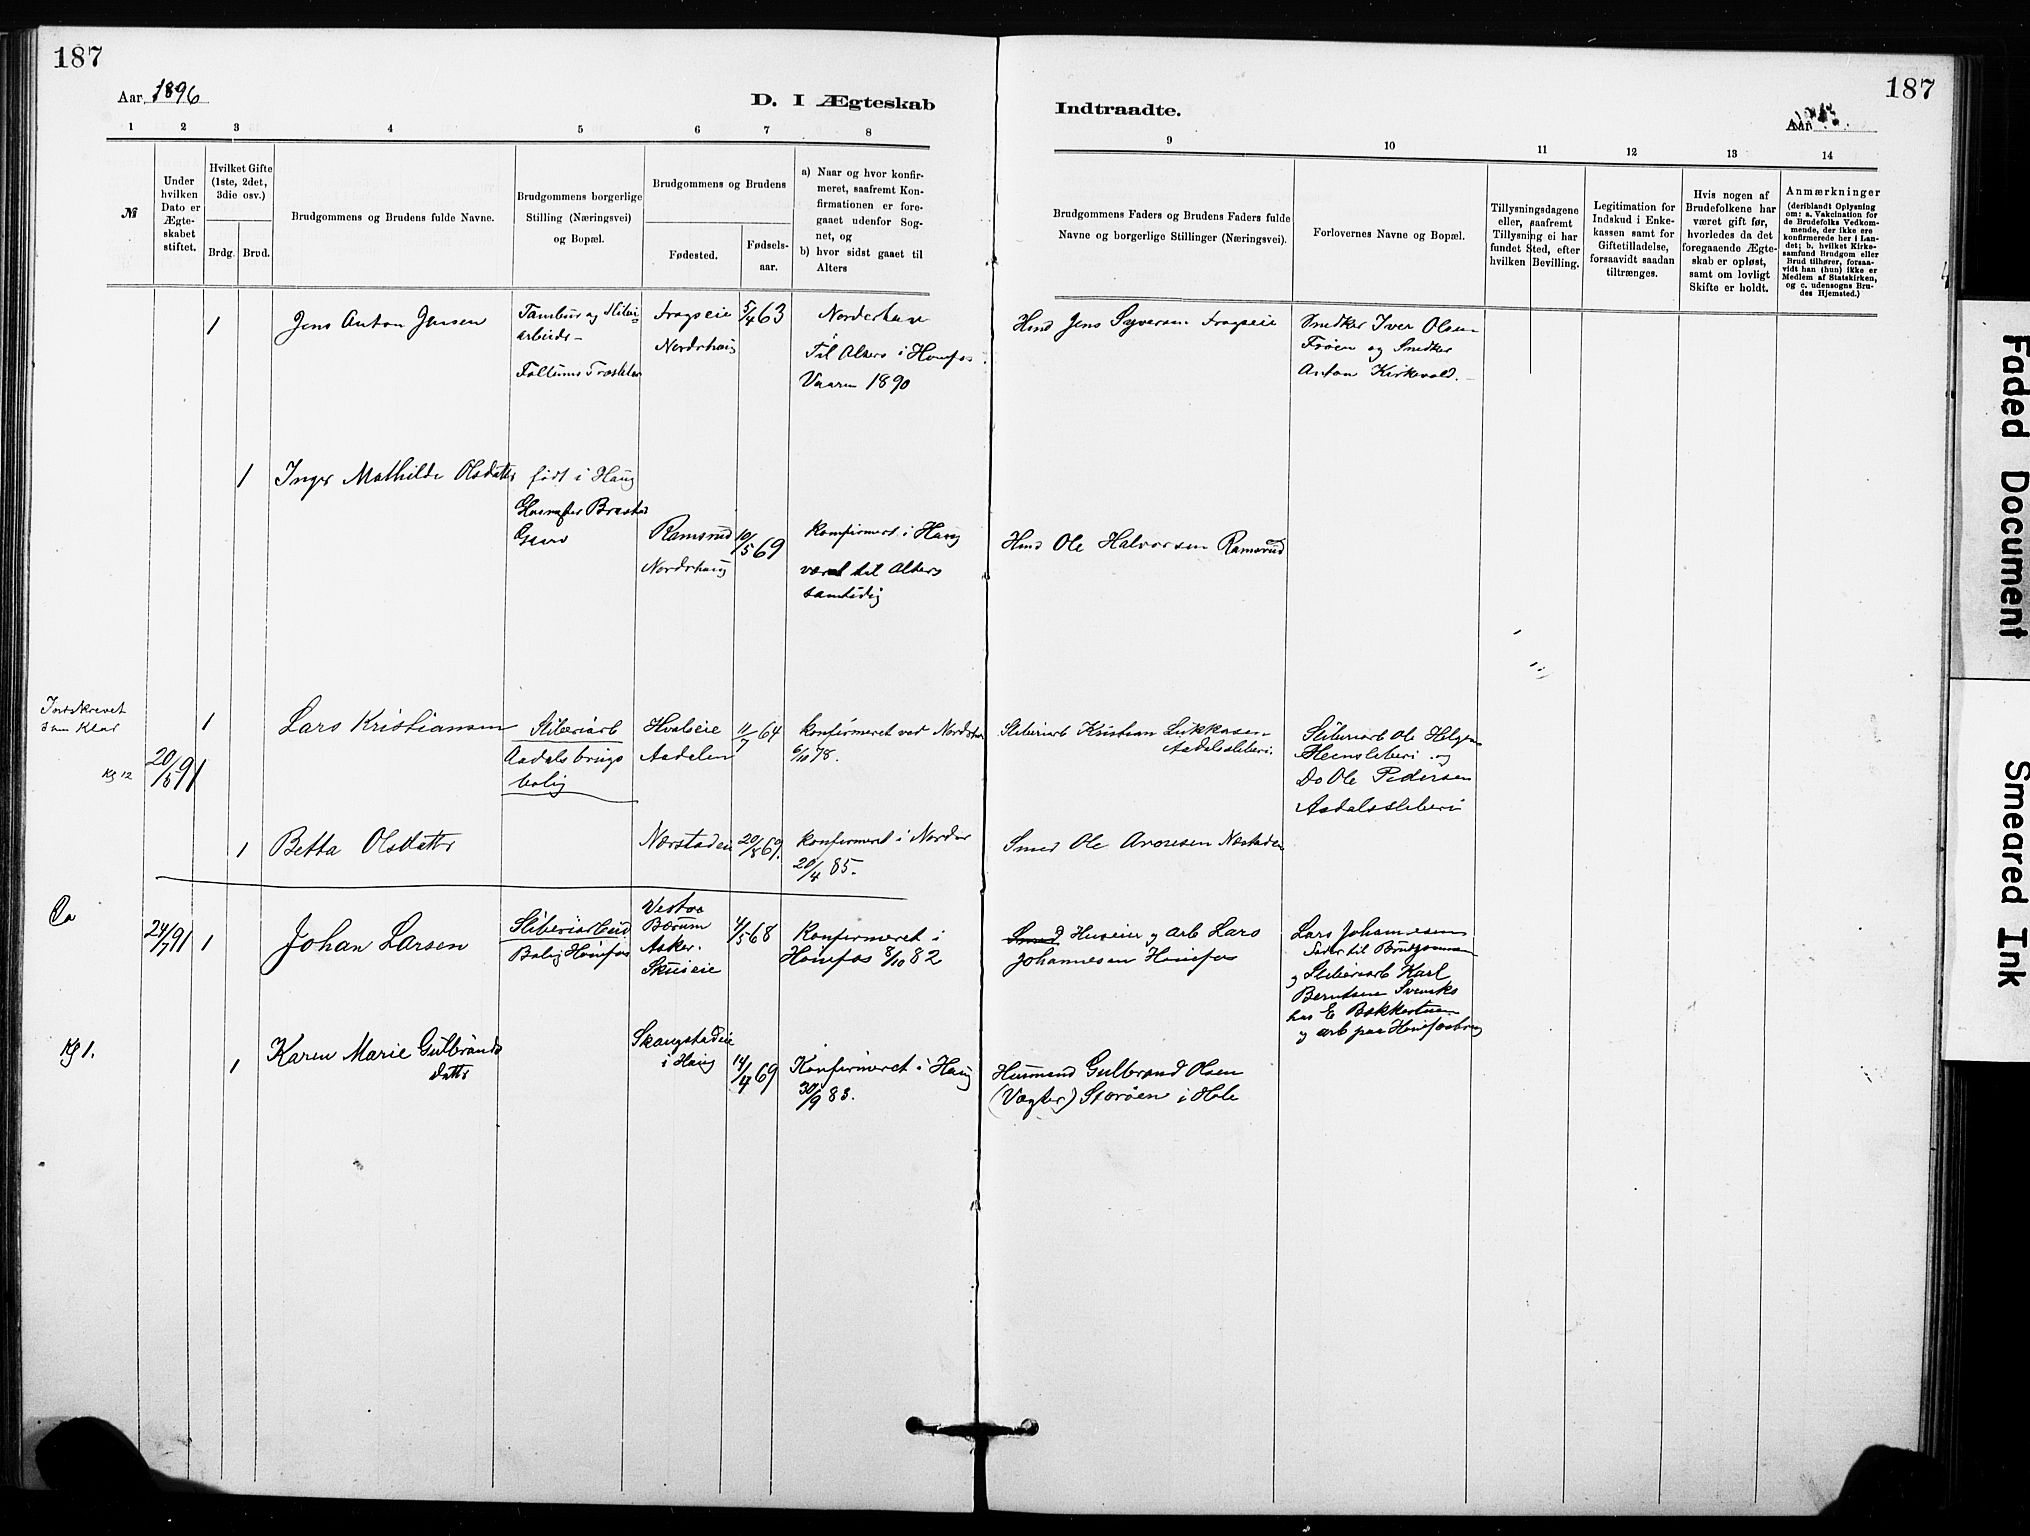 187
Aar 1896
D. I Ægteskab
1 2 3 4 5 6 7 8
№
Under hvilken Dato er Ægteskabet stiftet.
Hvilket Gifte (1ste, 2det, 3die osv.)
Brdg. Brud.
Brudgommens og Brudens fulde Navne.
Brudgommens borgerlige
Stilling (Næringsvei)
og Bopæl.
Brudgommens og Brudens
Fødested.
Fødsels-
aar.
a) Naar og hvor konfir-
meret, saafremt Kon-
firmationen er fore-
gaaet udenfor Sog-
net, og
b) hvor sidst gaaet til
Alters
1 Jens Anton Jensen
arbeide
Nordrhaug
5/4 63
Til Alters i Hønefos
Vaaren 1890
1 Inger Mathilde Olsdatter
født i Haug
Ramsrud
Nordrhaug
10/5 69
Konfirmeret i Haug
været til Alters
samtidig
20/5 91
1 Lars Kristiansen
Sliberiarb
Aadalsbrugs
bolig
Hvalseie
Aadalen
11/7 64
konfirmeret ved
6/10 78.
Kg 12
1 Betta Olsdatter
Nærstadeie
20/8 69.
konfirmeret i Norder
20/4 85.
Do
24/7 91
1 Johan Larsen
Bolig Hønefos
Vestre
Bærum
Asker.
Skuieie
4/5 68
Konfirmeret i
Hønefos 8/10 82
Kg 1.
1 Karen Marie Gulbrands
datter
i Haug
14/4 69
Konfirmeret i Haug
30/9 83.
187
Indtraadte.
Aar
9 10 11 12 13 14
Brudgommens Faders og Brudens Faders fulde
Navne og borgerlige Stillinger (Næringsvei).
Forlovernes Navne og Bopæl.
Tillysningsdagene
eller, saafremt
Tillysning ei har
fundet Sted, efter
hvilken Bevilling.
Legitimation for
Indskud i Enke-
kassen samt for
Giftetilladelse,
forsaavidt saadan
tiltrænges.
Hvis nogen af
Brudefolkene har
været gift før,
hvorledes da det
foregaaende Ægte-
skab er opløst,
samt om lovligt
Skifte er holdt.
Anmærkninger
(deriblandt Oplysning
om: a. Vakcination for
de Brudefolks Vedkom-
mende, der ikke ere
konfirmerede her i Lan-
det; b. hvilket Kirke-
samfund Brudgom eller
Brud tilhører, forsaa-
vidt han (hun) ikke er
Medlem af Statskirken,
og c. udensogns Bru-
des Hjemsted.)
Hmd Jens Syversen
Snedker Iver Olsen
Frøen og Snedker
Anton Kirkevold.
Hmd Ole Halvorsen Ramsrud
Sliberiarb Kristian
Aadalssliberi.
Sliberiarb Ole Helgen
Heensliberi og
Do Ole Pedersen
Aadalssliberi
Smed Ole
Huseier og Arb Lars
Johannesen Hønefos
Lars Johannesen
Fader til Brudgommen
og Sliberiarb Karl
Berntsen
og arb paa Hønefosbrug
Husmand Gulbrand Olsen
(Vægter) Storøen i Hole
Faded Document
Smeared Ink